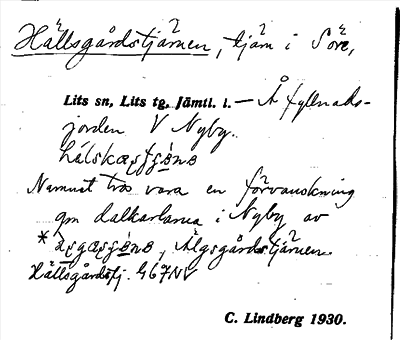 Hällsgårdstjärnen, tjärn i Söre,
Lits sn, Lits tg, Jämtl. l. — Å fyllnads-
jorden V Nyby.
Namnet tros vara en förvanskning
gm dalkarlarna i Nyby av
Älgsgårdstjärnen.
Hällsgårdstj. G67NV
C. Lindberg 1930.